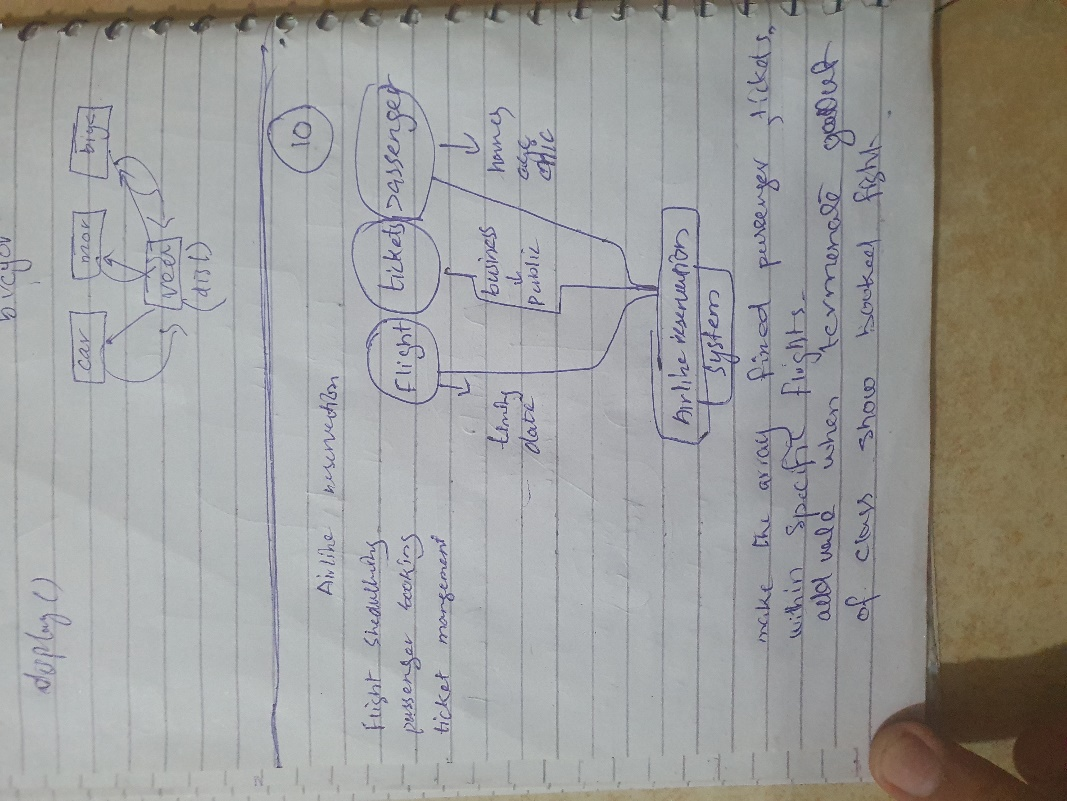 display()
car
veich
(dist)
10
Airlike reservation
Flight shedulling
passenger booking
ticket mangement
Flight
tickets
passenger
timing
date
business
&
Public
names
age
Airlike reservation
system
make the array fixed passenger tickets,
within specific flights.
add when termenate
of class show booked